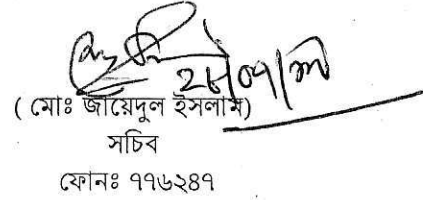 ( মোঃ জায়েদুল ইসলাম)
সচিব
ফোনঃ ৭৭৬২৪৭